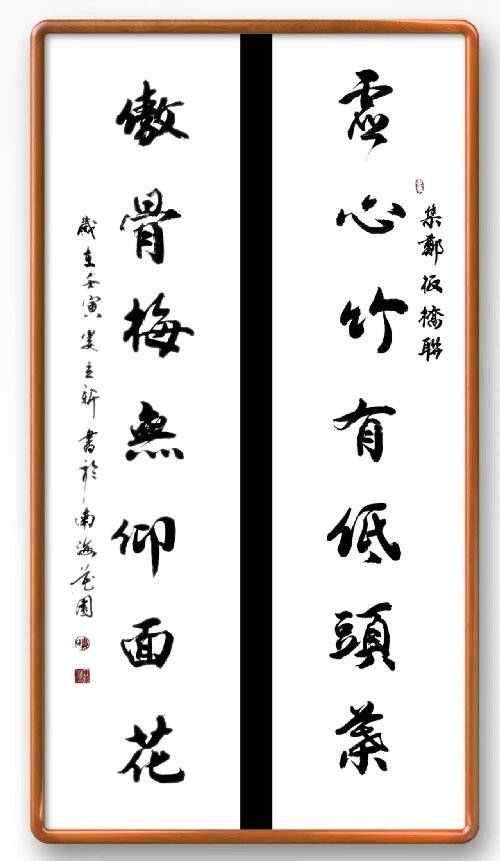 虛心竹有低頭葉
集鄭板橋聯
傲骨梅無仰面花
歲在壬寅安立新書於南海花園